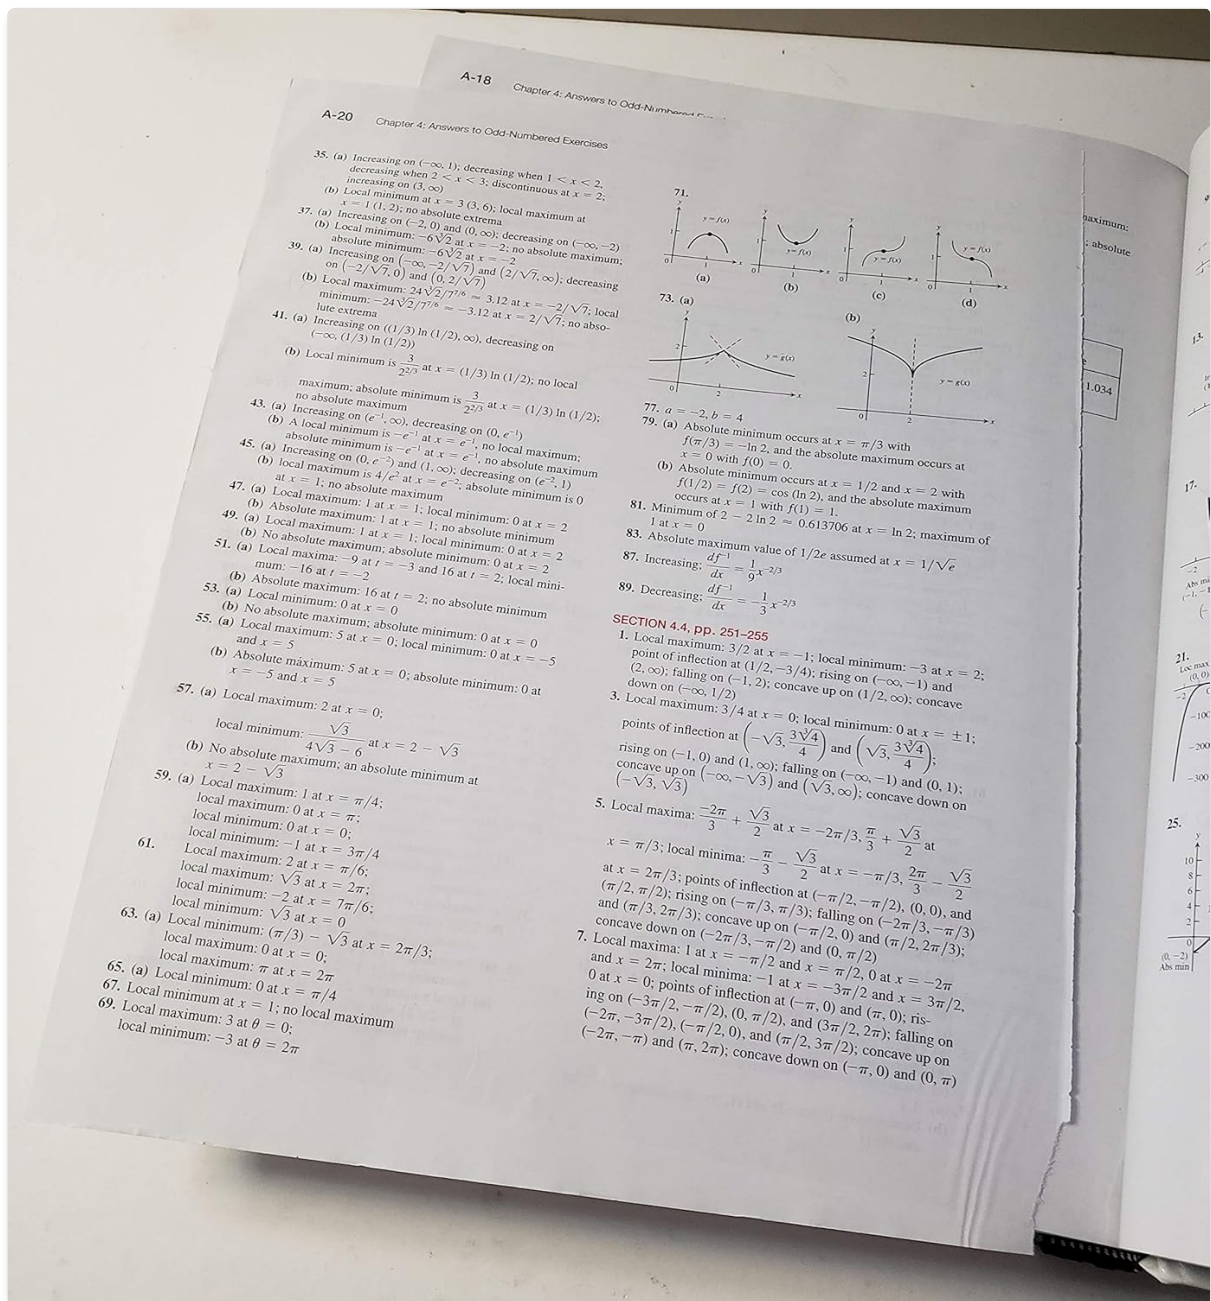 A-18 Chapter 4: Answers to Odd-Numbered
A-20 Chapter 4: Answers to Odd-Numbered Exercises
35. (a) Increasing on (−∞, 1); decreasing when 1 < x < 2,
decreasing when 2 < x < 3; discontinuous at x = 2;
increasing on (3, ∞)
(b) Local minimum at x = 3 (3, 6); local maximum at
x = 1 (1, 2); no absolute extrema
37. (a) Increasing on (−2, 0) and (0, ∞); decreasing on (−∞, −2)
(b) Local minimum: −6∛2 at x = −2; no absolute maximum;
absolute minimum: −6∛2 at x = −2
39. (a) Increasing on (−∞, −2/√7) and (2/√7, ∞); decreasing
on (−2/√7, 0) and (0, 2/√7)
(b) Local maximum: 24∛2/7^(7/6) ≈ 3.12 at x = −2/√7; local
minimum: −24∛2/7^(7/6) ≈ −3.12 at x = 2/√7; no abso-
lute extrema
41. (a) Increasing on ((1/3) ln (1/2), ∞), decreasing on
(−∞, (1/3) ln (1/2))
(b) Local minimum is 3/2^(2/3) at x = (1/3) ln (1/2); no local
maximum; absolute minimum is 3/2^(2/3) at x = (1/3) ln (1/2);
no absolute maximum
43. (a) Increasing on (e⁻¹, ∞), decreasing on (0, e⁻¹)
(b) A local minimum is −e⁻¹ at x = e⁻¹, no local maximum;
absolute minimum is −e⁻¹ at x = e⁻¹, no absolute maximum
45. (a) Increasing on (0, e⁻²) and (1, ∞); decreasing on (e⁻², 1)
(b) local maximum is 4/e² at x = e⁻²; absolute minimum is 0
at x = 1; no absolute maximum
47. (a) Local maximum: 1 at x = 1; local minimum: 0 at x = 2
(b) Absolute maximum: 1 at x = 1; no absolute minimum
49. (a) Local maximum: 1 at x = 1; local minimum: 0 at x = 2
(b) No absolute maximum; absolute minimum: 0 at x = 2
51. (a) Local maxima: −9 at t = −3 and 16 at t = 2; local mini-
mum: −16 at t = −2
(b) Absolute maximum: 16 at t = 2; no absolute minimum
53. (a) Local minimum: 0 at x = 0
(b) No absolute maximum; absolute minimum: 0 at x = 0
55. (a) Local maximum: 5 at x = 0; local minimum: 0 at x = −5
and x = 5
(b) Absolute máximum: 5 at x = 0; absolute minimum: 0 at
x = −5 and x = 5
57. (a) Local maximum: 2 at x = 0;
local minimum: √3/(4√3 − 6) at x = 2 − √3
(b) No absolute maximum; an absolute minimum at
x = 2 − √3
59. (a) Local maximum: 1 at x = π/4;
local maximum: 0 at x = π;
local minimum: 0 at x = 0;
local minimum: −1 at x = 3π/4
61. Local maximum: 2 at x = π/6;
local maximum: √3 at x = 2π;
local minimum: −2 at x = 7π/6;
local minimum: √3 at x = 0
63. (a) Local minimum: (π/3) − √3 at x = 2π/3;
local maximum: 0 at x = 0;
local maximum: π at x = 2π
65. (a) Local minimum: 0 at x = π/4
67. Local minimum at x = 1; no local maximum
69. Local maximum: 3 at θ = 0;
local minimum: −3 at θ = 2π
71.
y y y y
y = f(x) y = f(x) y = f(x) y = f(x)
1 1 1 1
0 1 x 0 1 x 0 1 x 0 1 x
(a) (b) (c) (d)
73. (a) (b)
y y
2 y = g(x) 2 y = g(x)
0 2 x 0 2 x
77. a = −2, b = 4
79. (a) Absolute minimum occurs at x = π/3 with
f(π/3) = −ln 2, and the absolute maximum occurs at
x = 0 with f(0) = 0.
(b) Absolute minimum occurs at x = 1/2 and x = 2 with
f(1/2) = f(2) = cos (ln 2), and the absolute maximum
occurs at x = 1 with f(1) = 1.
81. Minimum of 2 − 2 ln 2 ≈ 0.613706 at x = ln 2; maximum of
1 at x = 0
83. Absolute maximum value of 1/2e assumed at x = 1/√e
87. Increasing; df⁻¹/dx = 1/9 x^(−2/3)
89. Decreasing; df⁻¹/dx = −1/3 x^(−2/3)
SECTION 4.4, pp. 251–255
1. Local maximum: 3/2 at x = −1; local minimum: −3 at x = 2;
point of inflection at (1/2, −3/4); rising on (−∞, −1) and
(2, ∞); falling on (−1, 2); concave up on (1/2, ∞); concave
down on (−∞, 1/2)
3. Local maximum: 3/4 at x = 0; local minimum: 0 at x = ±1;
points of inflection at (−√3, 3∛4/4) and (√3, 3∛4/4);
rising on (−1, 0) and (1, ∞); falling on (−∞, −1) and (0, 1);
concave up on (−∞, −√3) and (√3, ∞); concave down on
(−√3, √3)
5. Local maxima: −2π/3 + √3/2 at x = −2π/3, π/3 + √3/2 at
x = π/3; local minima: −π/3 − √3/2 at x = −π/3, 2π/3 − √3/2
at x = 2π/3; points of inflection at (−π/2, −π/2), (0, 0), and
(π/2, π/2); rising on (−π/3, π/3); falling on (−2π/3, −π/3)
and (π/3, 2π/3); concave up on (−π/2, 0) and (π/2, 2π/3);
concave down on (−2π/3, −π/2) and (0, π/2)
7. Local maxima: 1 at x = −π/2 and x = π/2, 0 at x = −2π
and x = 2π; local minima: −1 at x = −3π/2 and x = 3π/2,
0 at x = 0; points of inflection at (−π, 0) and (π, 0); ris-
ing on (−3π/2, −π/2), (0, π/2), and (3π/2, 2π); falling on
(−2π, −3π/2), (−π/2, 0), and (π/2, 3π/2); concave up on
(−2π, −π) and (π, 2π); concave down on (−π, 0) and (0, π)
aximum:
; absolute
1.034
13.
17.
−2
Abs mi
(−1, −1
21.
Loc max
(0, 0)
−2
−100
−200
−300
25.
y
10
8
6
4
2
0
(0, −2)
Abs min